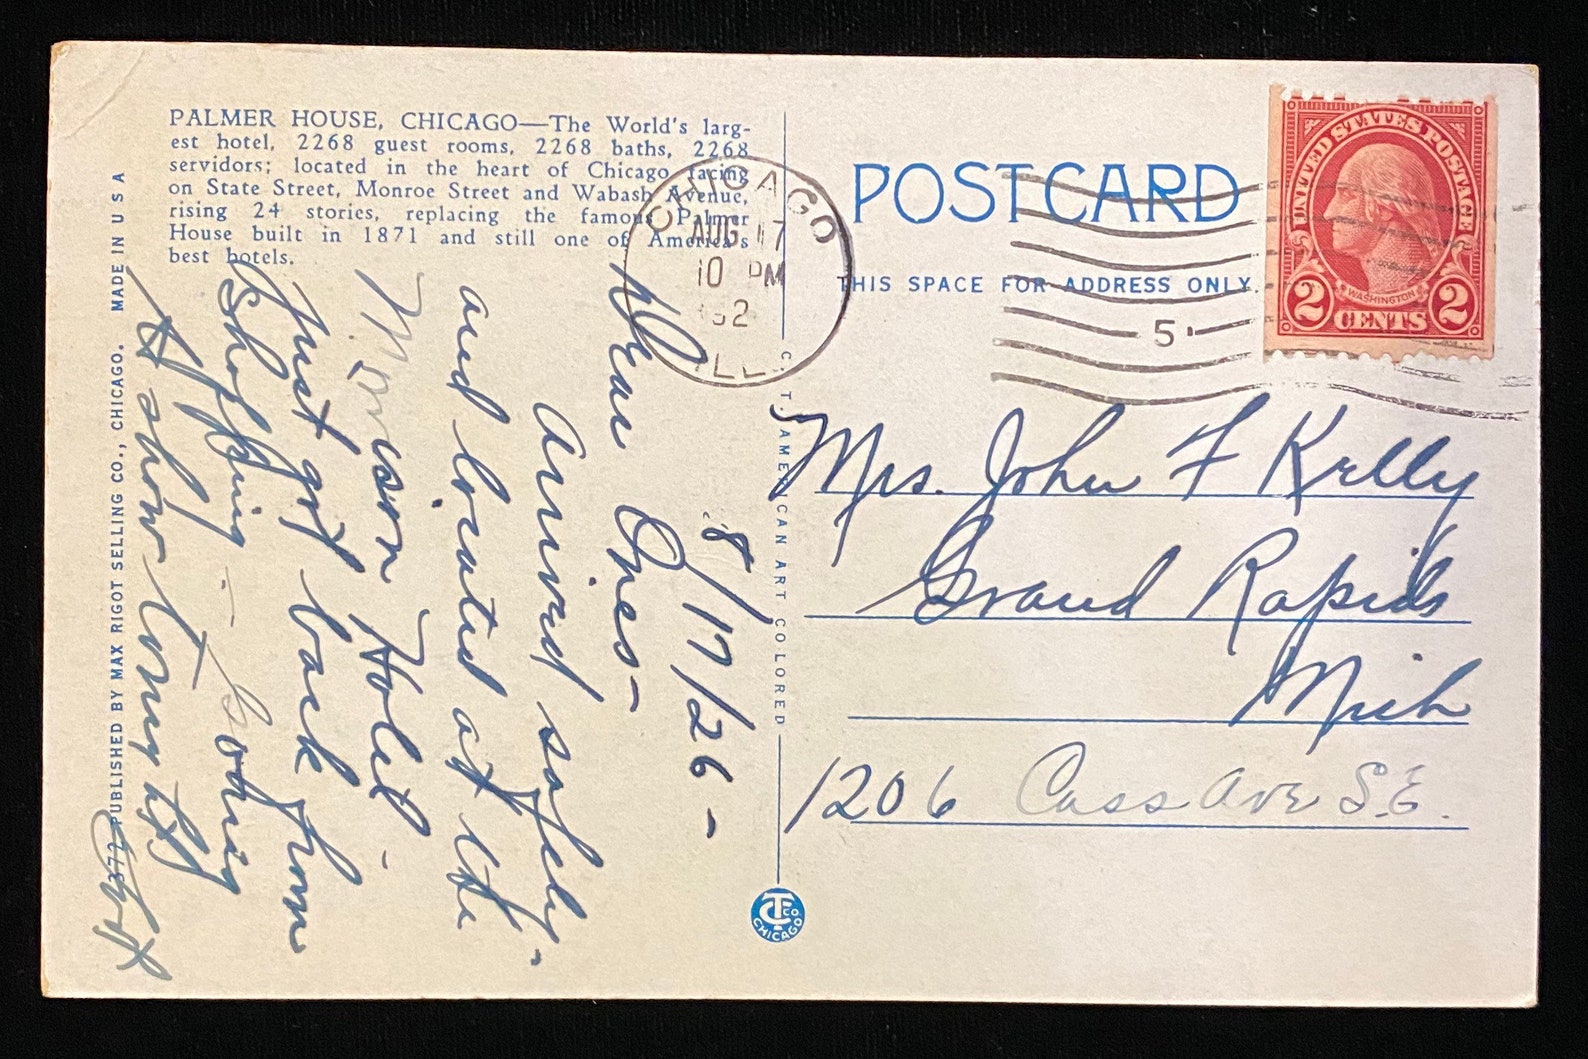 PALMER HOUSE, CHICAGO—The World's larg-
est hotel, 2268 guest rooms, 2268 baths, 2268
servidors; located in the heart of Chicago facing
on State Street, Monroe Street and Wabash Avenue,
rising 24 stories, replacing the famous Palmer
House built in 1871 and still one of America's
best hotels.
8/17/26-
Dear Ones-
Arrived safely-
and located at the
Morrison Hotel-
Just got back from
shopping - Going
to show tonight
372 PUBLISHED BY MAX RIGOT SELLING CO., CHICAGO. MADE IN U S A
C. T. AMERICAN ART COLORED
CHICAGO
AUG 17
10 PM
ILL.
5
POSTCARD
THIS SPACE FOR ADDRESS ONLY.
UNITED STATES POSTAGE
WASHINGTON
2 CENTS 2
Mrs. John F Kelly
Grand Rapids
Mich
1206 Cass Ave S.E.
CT CO.
CHICAGO